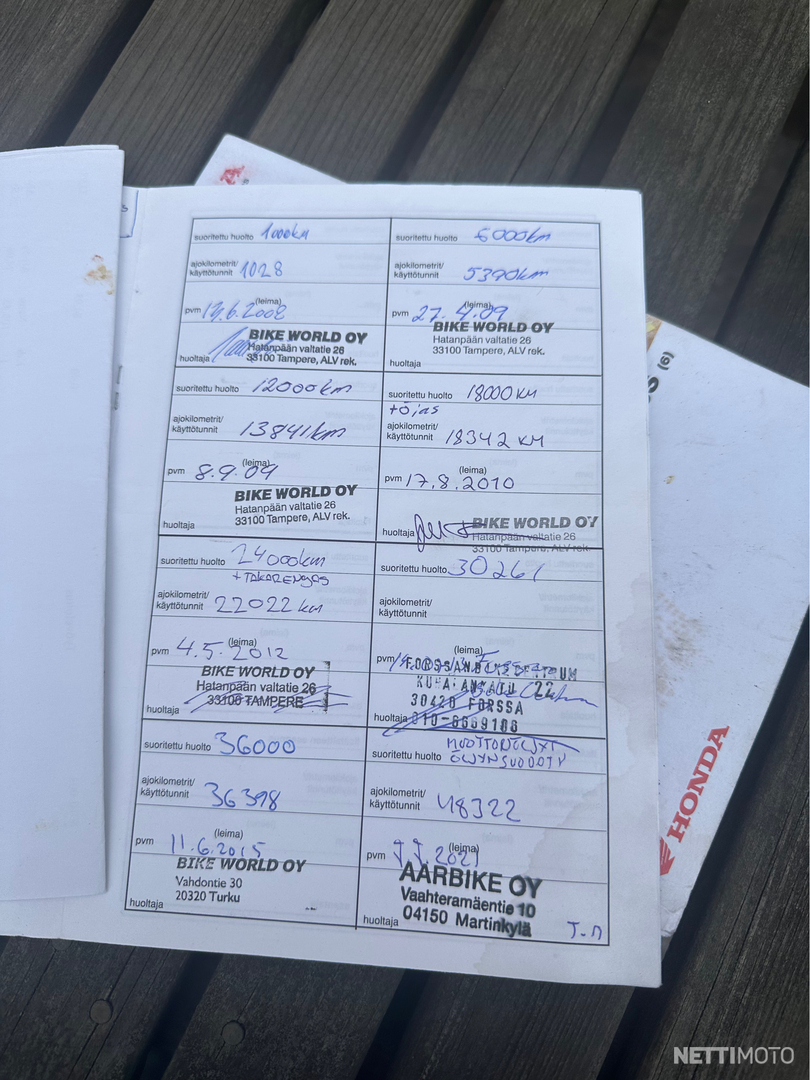 suoritettu huolto 1000km
ajokilometrit/
käyttötunnit 1028
(leima)
pvm 13.6.2008
BIKE WORLD OY
Hatanpään valtatie 26
33100 Tampere, ALV rek.
huoltaja
suoritettu huolto 6000km
ajokilometrit/
käyttötunnit 5390km
(leima)
pvm 27.4.09
BIKE WORLD OY
Hatanpään valtatie 26
33100 Tampere, ALV rek.
huoltaja
suoritettu huolto 12000km
ajokilometrit/
käyttötunnit 13841km
(leima)
pvm 8.9.09
BIKE WORLD OY
Hatanpään valtatie 26
33100 Tampere, ALV rek.
huoltaja
suoritettu huolto 18000 KM
+öjas
ajokilometrit/
käyttötunnit 18342 KM
(leima)
pvm 17.8.2010
huoltaja
BIKE WORLD OY
Hatanpään valtatie 26
33100 Tampere, ALV rek.
suoritettu huolto 24000km
+TAKARENGAS
ajokilometrit/
käyttötunnit 22022 km
(leima)
pvm 4.5.2012
BIKE WORLD OY
Hatanpään valtatie 26
33100 TAMPERE
huoltaja
suoritettu huolto 30261
ajokilometrit/
käyttötunnit
(leima)
pvm
30420 FORSSA
huoltaja 010-6669106
suoritettu huolto 36000
ajokilometrit/
käyttötunnit 36398
(leima)
pvm 11.6.2015
BIKE WORLD OY
Vahdontie 30
20320 Turku
huoltaja
suoritettu huolto
ajokilometrit/
käyttötunnit 48322
(leima)
pvm 7.7.2021
AARBIKE OY
Vaahteramäentie 10
04150 Martinkylä
huoltaja
HONDA
(6)
NETTIMOTO